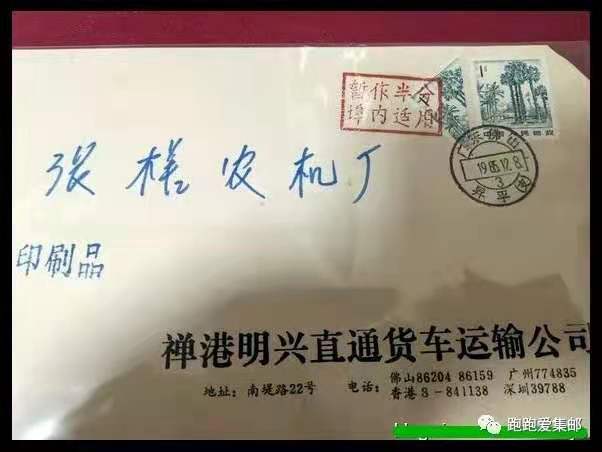 暂作半分
埠内适用
1分
中国人民邮政
广东佛山
1985.12.8
3
昇平(支)
张槎农机厂
印刷品
禅港明兴直通货车运输公司
地址：南堤路22号 电话：佛山86204 86159 广州774835
香港3-841138 深圳39788
跑跑爱集邮